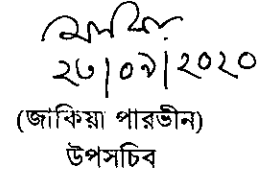 ২৩|০৯|২০২০
(জাকিয়া পারভীন)
উপসচিব